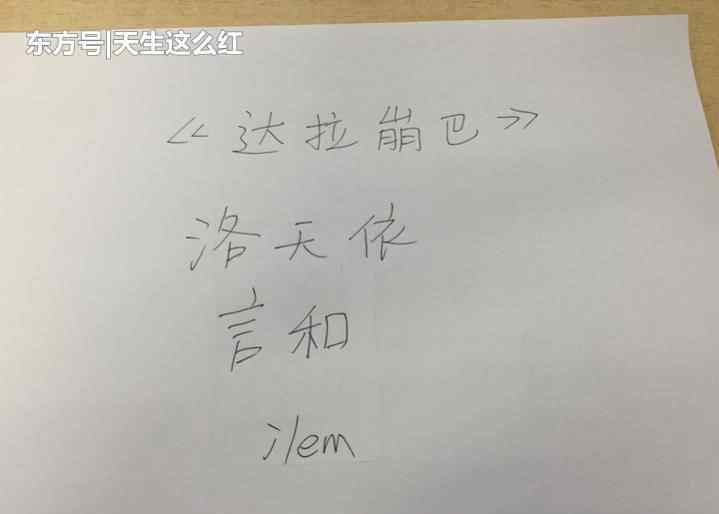 东方号|天生这么红
《达拉崩巴》
洛天依
言和
ilem